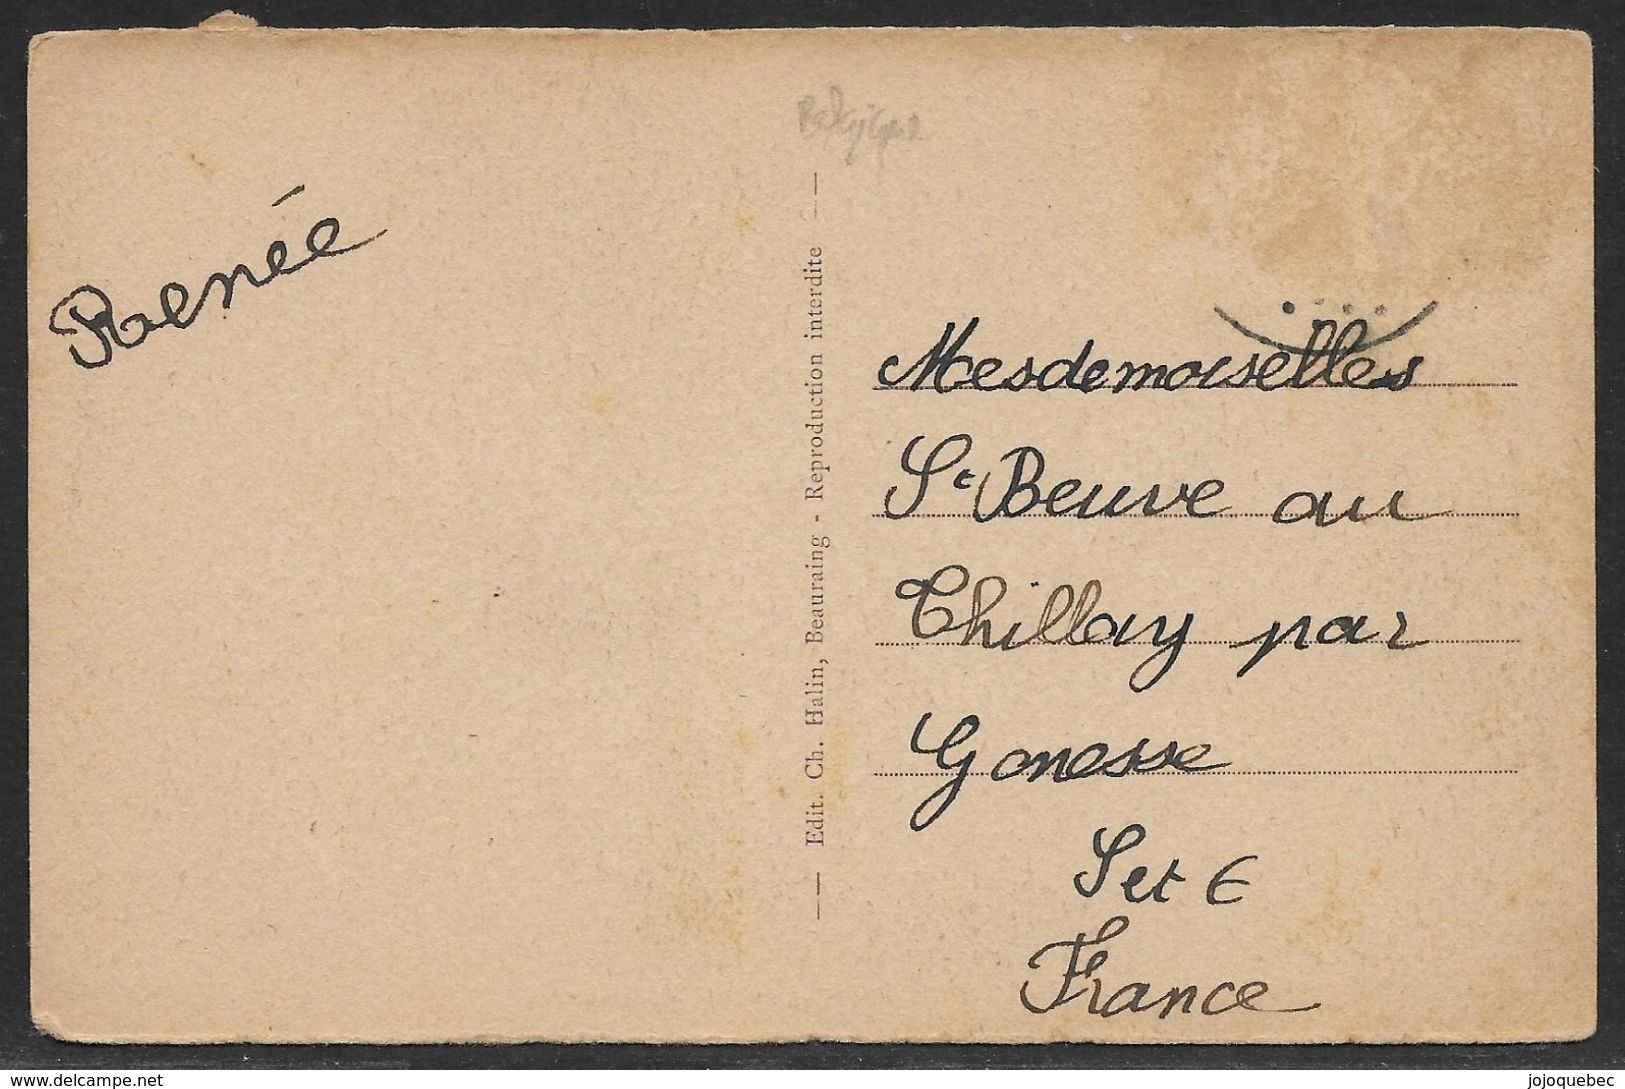 Belgique
Renée
Edit. Ch. Halin, Beauraing - Reproduction interdite
Mesdemoiselles
Ste Beuve au
Thillay par
Gonesse
S et E
France
delcampe.net
jojoquebec